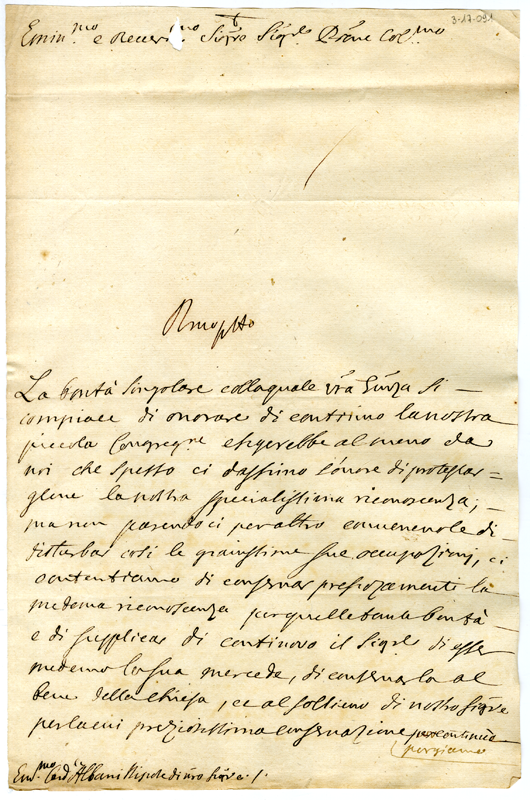 3-17-091
Emin.mo e Reueri.mo Sig.re Sig.re Prône Col.mo
La bontà singolare collaquale v̄ra Em̄za si
compiace di onorare di continuo la nostra
piccola Congreg.ne esigerebbe al meno da
noi che spesso ci dassimo l'onore di protestar=
gliene la nostra specialissima riconoscenza;
ma non parendoci per altro conueneuole di
disturbar così le grauissime sue occupazioni, ci
contentiamo di conseruar preziozamente la
medema riconoscenza per quelle tante bontà
e di supplicar di continouo il Sig.re di esser
medemo la sua mercede, di conseruarla al
bene della chiesa, ed al sollieuo di nostro Sig.re
per la cui preziosissima conseruazione
porgiamo
Em.mo Card. Albani Nipote di n̄ro Sig.re